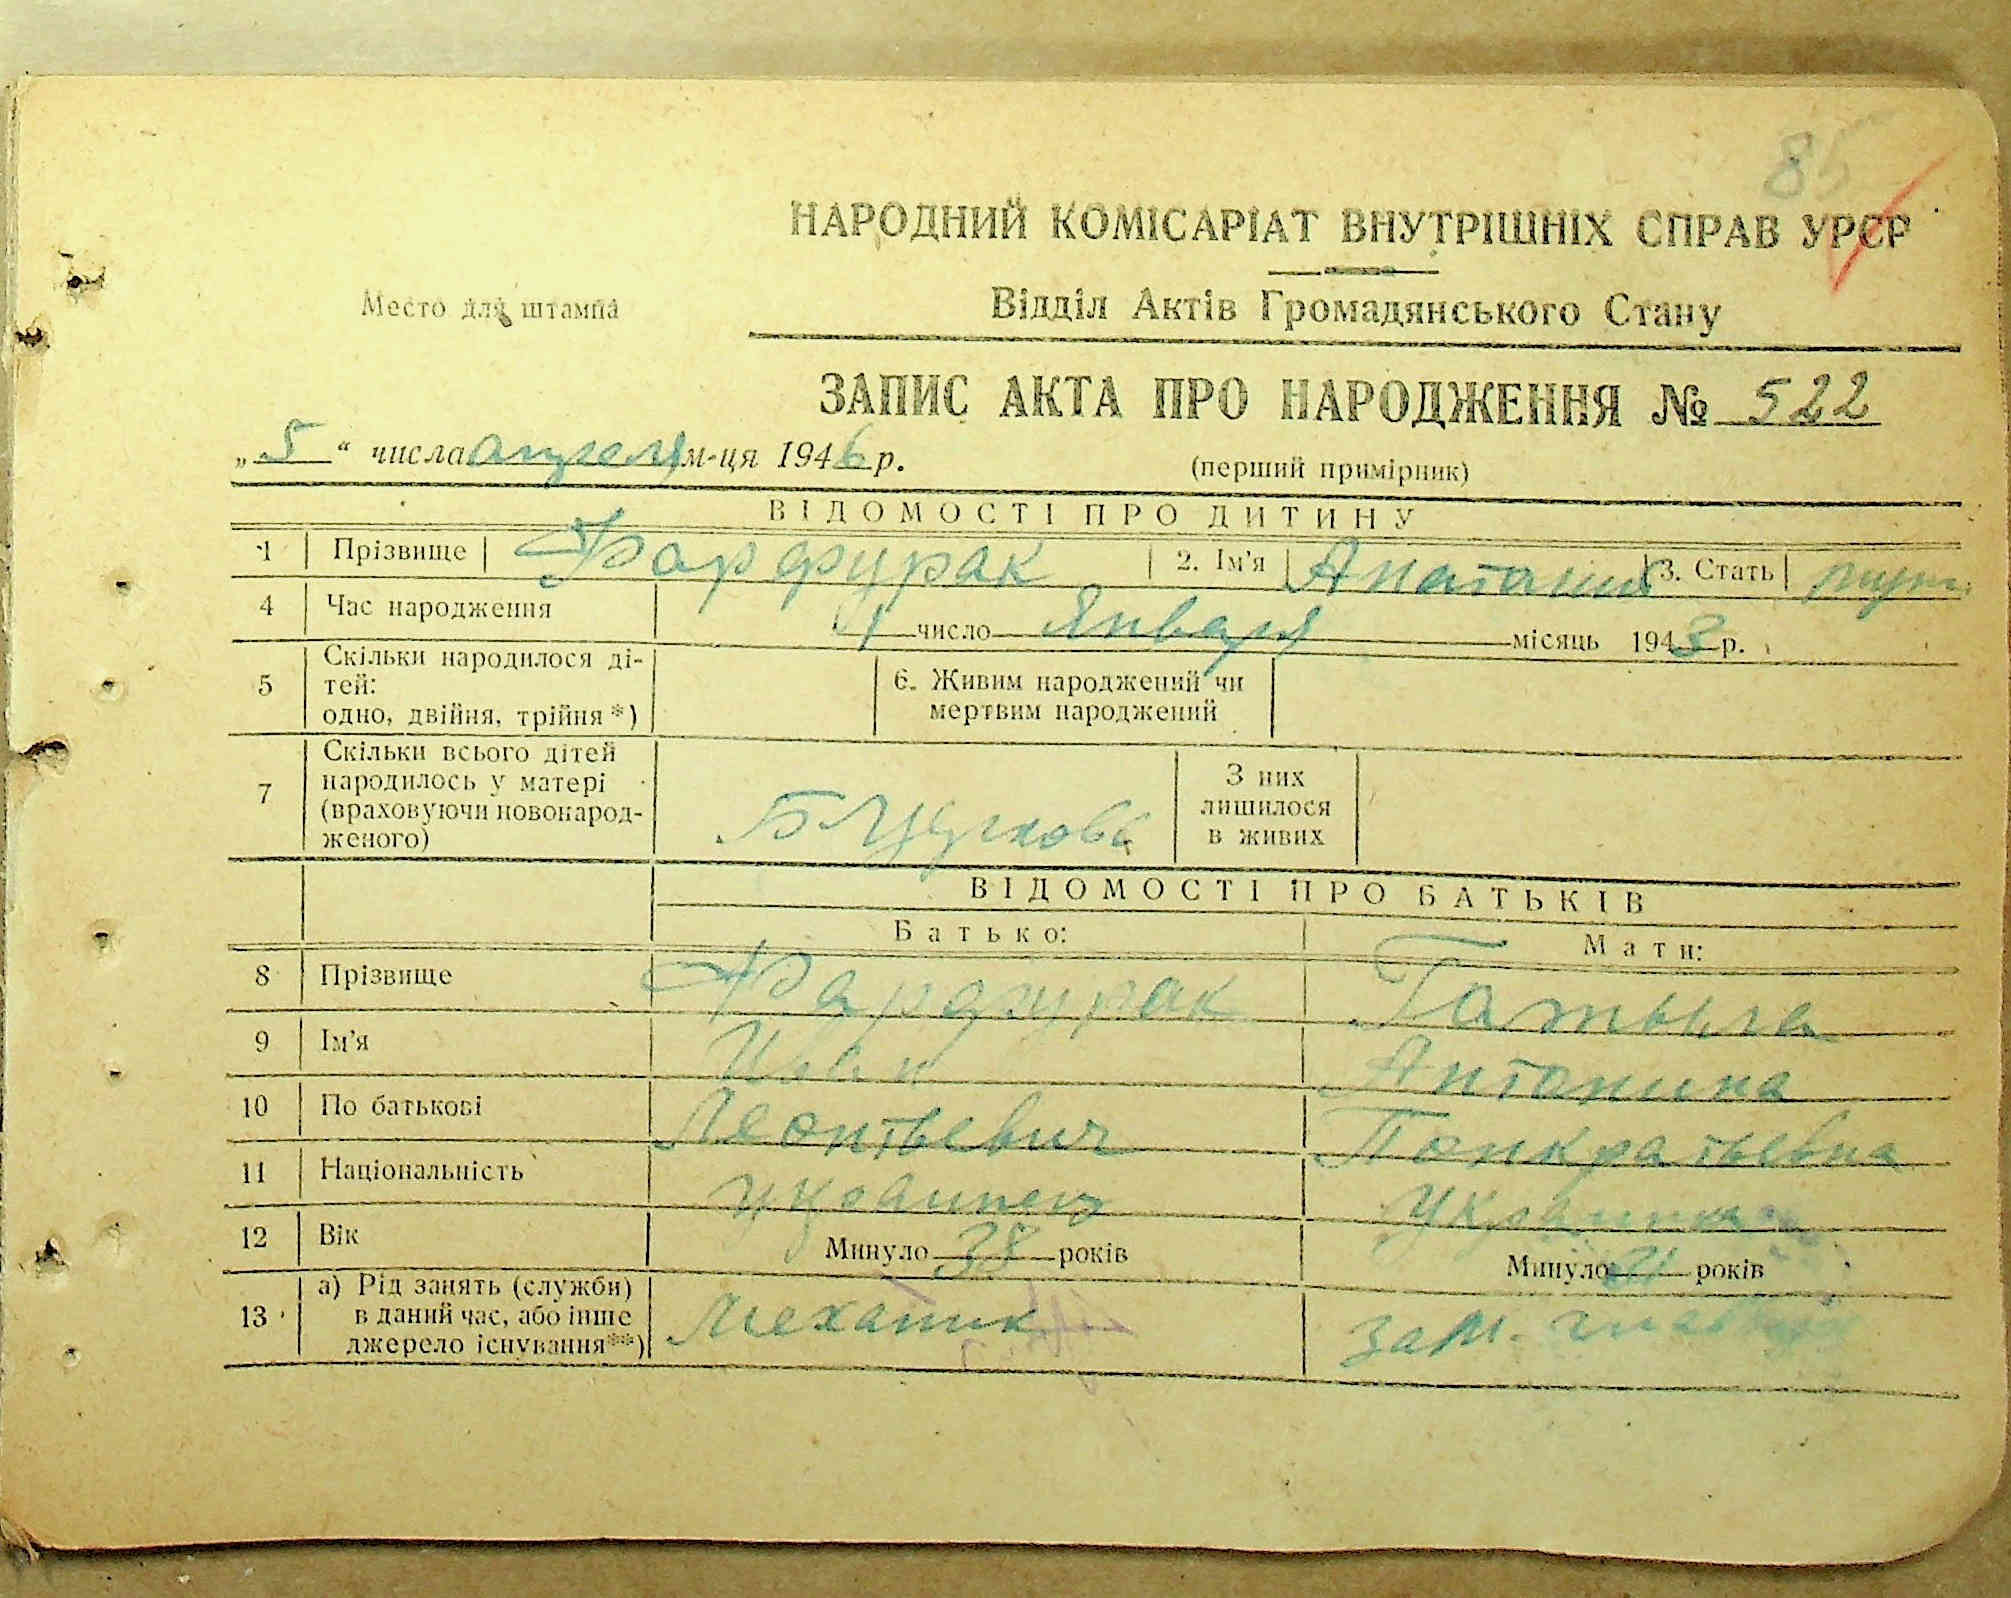 85
НАРОДНИЙ КОМІСАРІАТ ВНУТРІШНІХ СПРАВ УРСР
Место для штампа
Відділ Актів Громадянського Стану
ЗАПИС АКТА ПРО НАРОДЖЕННЯ № 522
„5“ числа апреля м-ця 1946 р.
(перший примірник)
ВІДОМОСТІ ПРО ДИТИНУ
1 Прізвище Фарфурак 2. Ім'я Анатолий 3. Стать муж.
4 Час народження 1 число Января місяць 1943 р.
5 Скільки народилося ді-
тей:
одно, двійня, трійня *)
6. Живим народжений чи
мертвим народжений
7 Скільки всього дітей
народилось у матері
(враховуючи новонарод-
женого)
З них
лишилося
в живих
ВІДОМОСТІ ПРО БАТЬКІВ
Батько: Мати:
8 Прізвище Фарфурак
9 Ім'я Иван Антонина
10 По батькові Леонтьевич Панкратьевна
11 Національність украинец Украинка
12 Вік Минуло 38 років Минуло 21 років
13 а) Рід занять (служби)
в даний час, або інше
джерело існування**)
Механик зам.